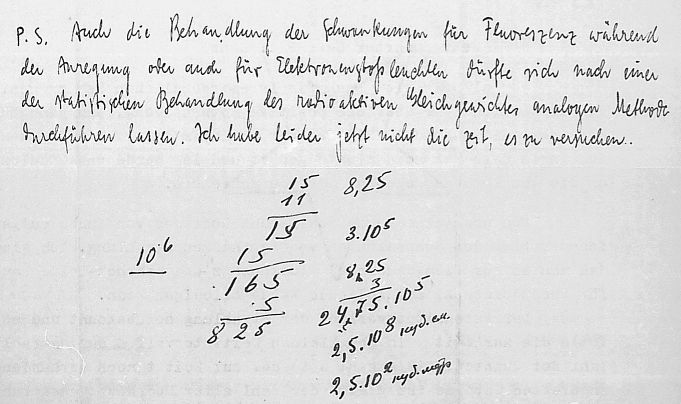 P.S. Auch die Behandlung der Schwankungen für Fluoreszenz während
der Anregung oder auch für Elektronenstoßleuchten dürfte sich nach einer
der statistischen Behandlung des radioaktiven Gleichgewichtes analogen Methode
durchführen lassen. Ich habe leider jetzt nicht die Zeit, es zu versuchen..
15 8,25
11
15 3.10⁵
10⁶ 15 8,25
165 3
.5 2475.10⁵
825
2,5.10⁸ куб.см.
2,5.10² куб.метр